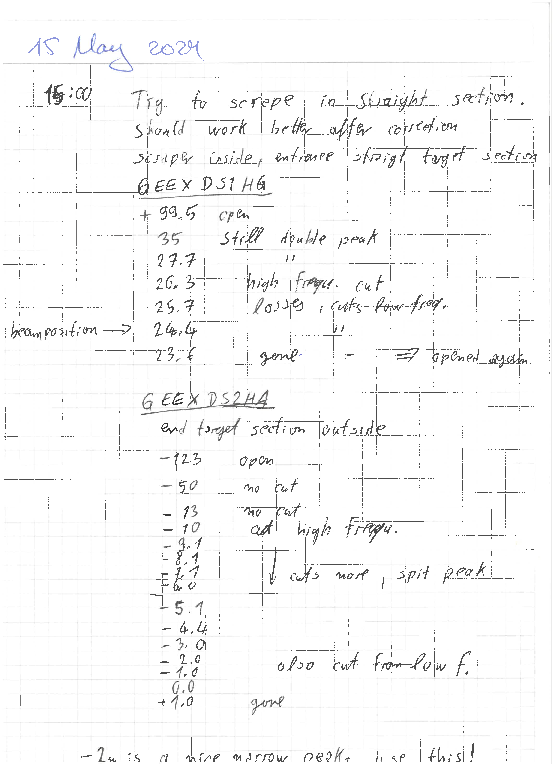 15 May 2024
15:00 Try to screpe in straight section.
Should work better after correction
scraper inside, entrance straigt target section
GEEXDS1HG
+ 99.5 open
35 still double peak
27.7 "
26.3 high frequ. cut
25.7 losses, cuts low freq.
beamposition → 24.4 "
23.6 gone - ⇒ opened again.
GEEXDS2HA
end target section outside
-123 open
-50 no cut
-13 no cut
-10 cut high frequ.
-9.1
-8.1
-7.1 ↓ cuts more, spit peak
-6.0
-5.1
-4.4
-3.0
-2.0 also cut from low f.
-1.0
0.0
+1.0 gone
is a nice narrow peak, use this!